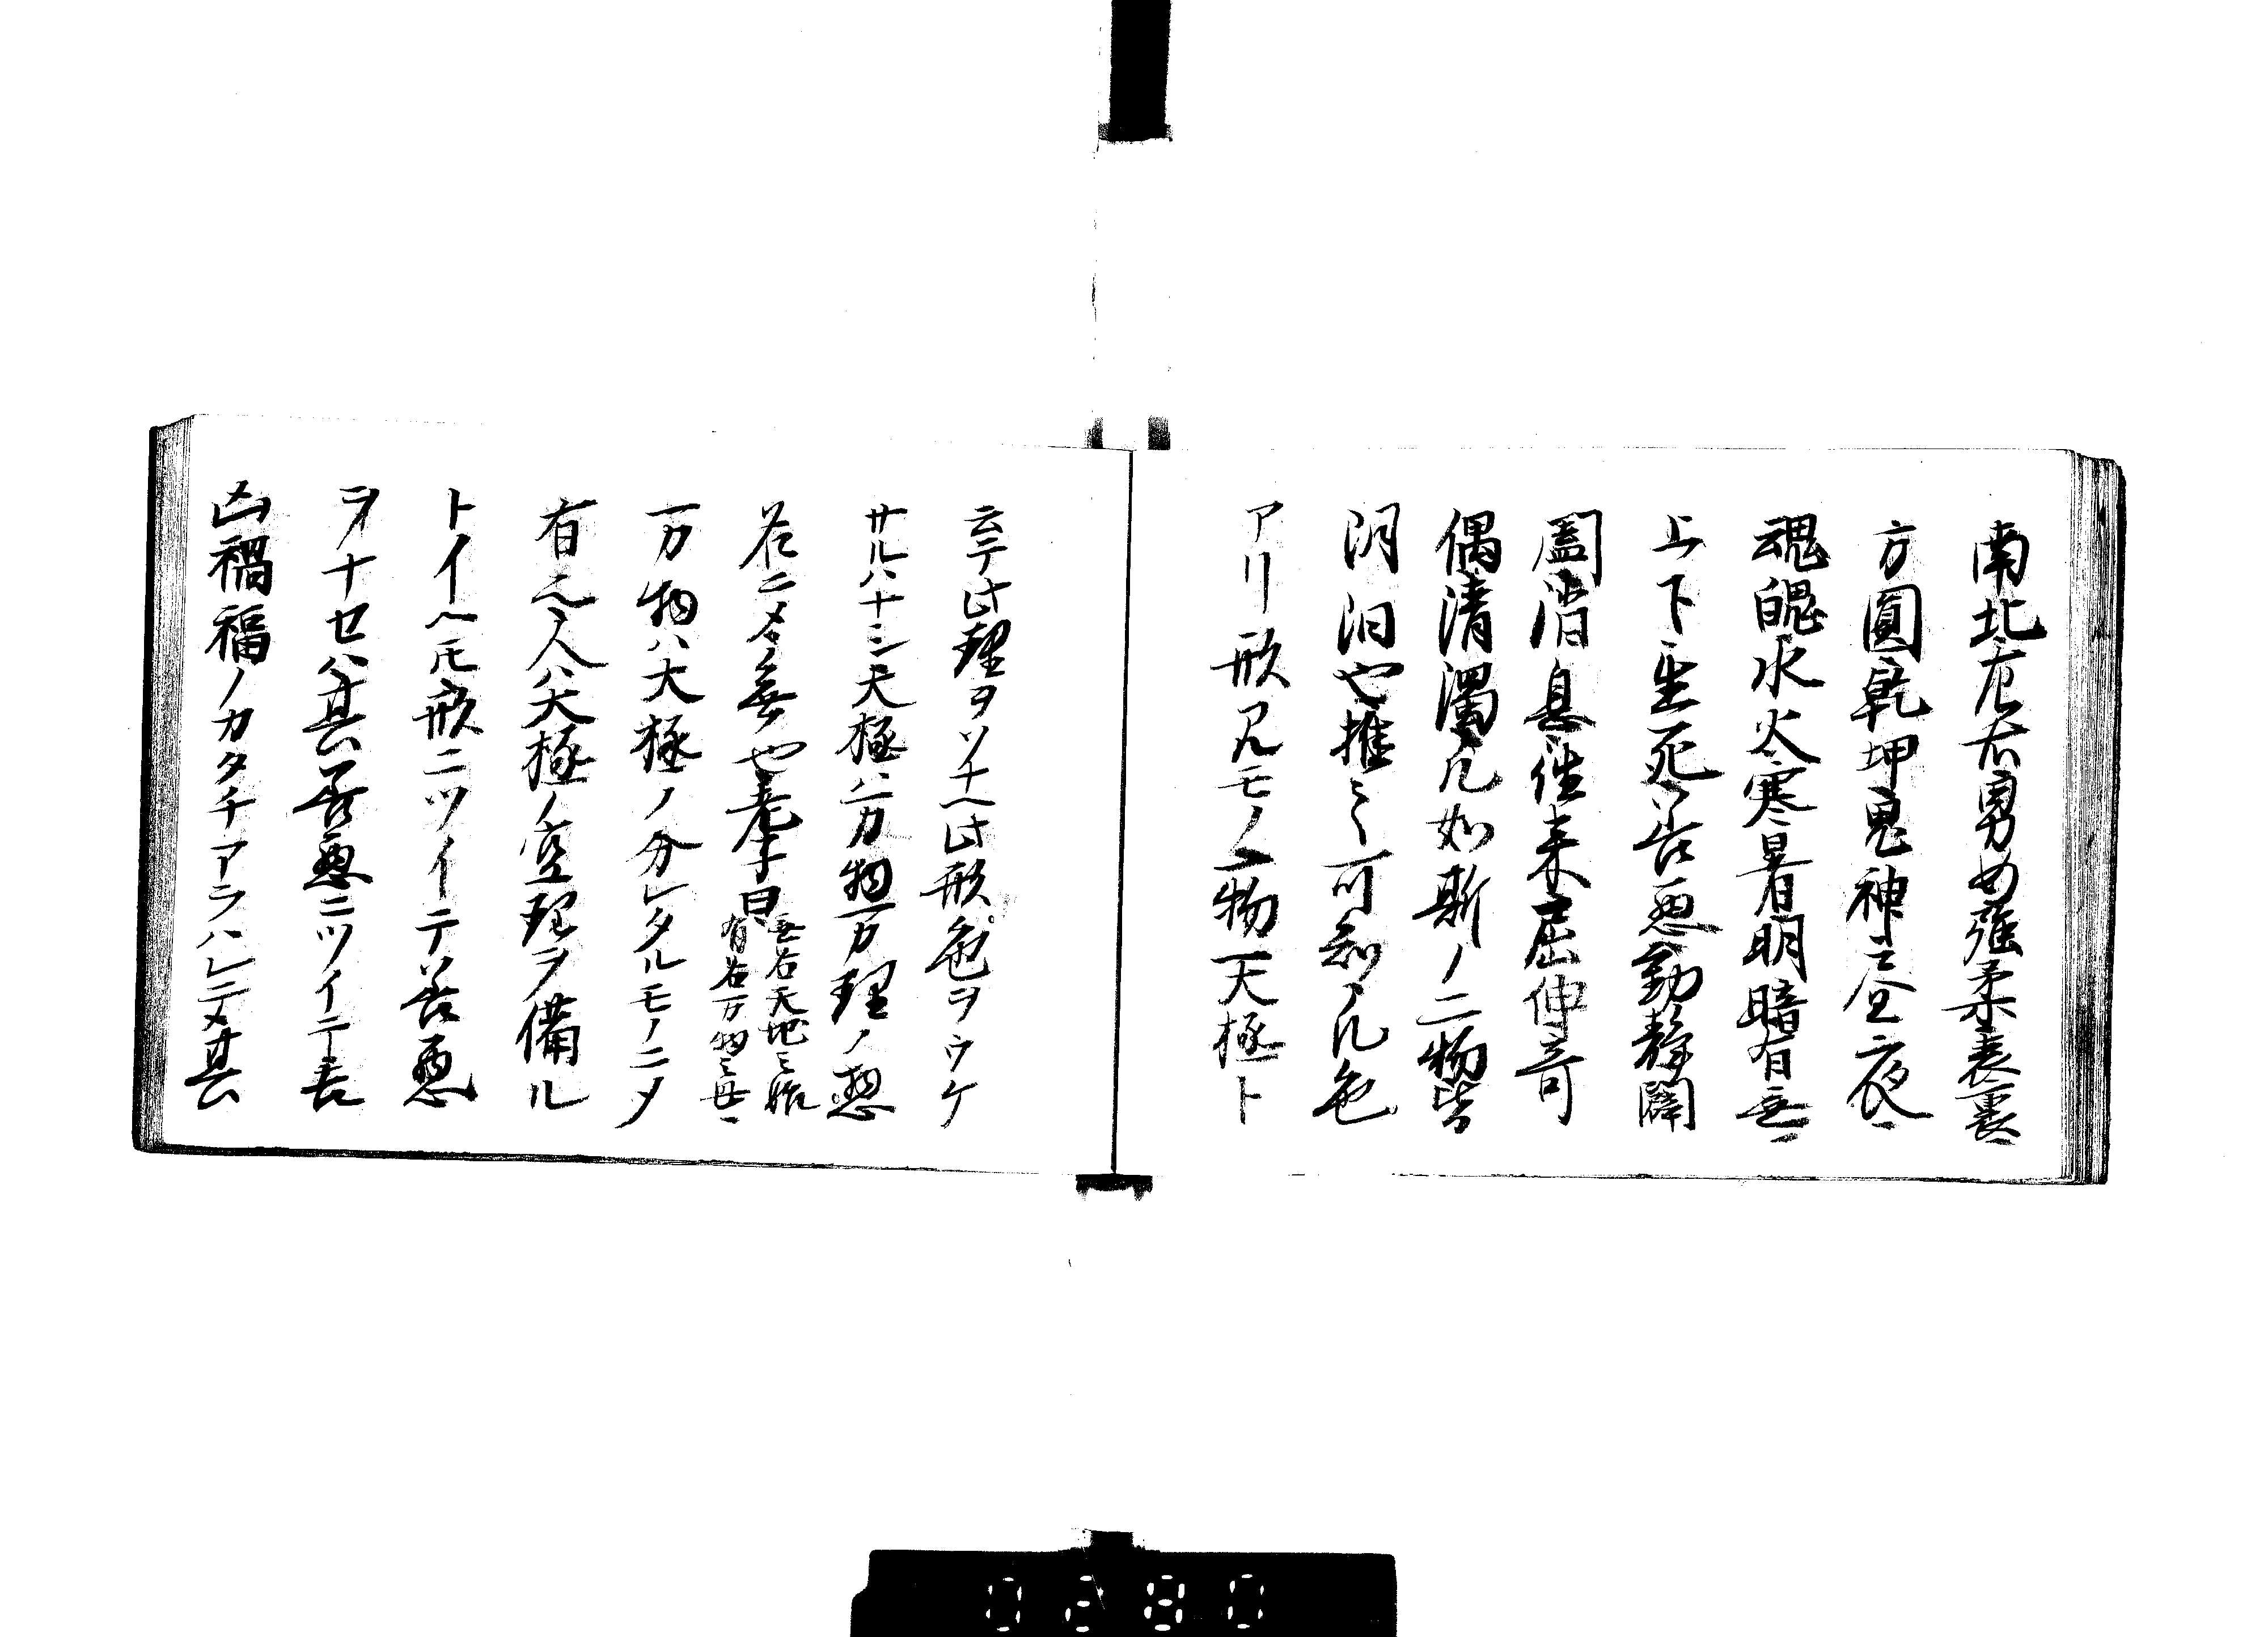 南北左右男女强柔表裏
方圓乾坤鬼神昼夜
魂魄水火寒暑明暗有無
上下生死善悪動静闢
闔消息往来屈伸奇
偶清濁凡如斯ノ二物皆
阴阳也推之可知凡色
アリ形アルモノ一物天極ト
云テ此理ヲソナヘ此形色ヲウケ
サルハナシ天極ハ万物一万理ノ惣
名ニメ无也老子曰
無名天地之始
有名万物之母
万物ハ大極ノ分レタルモノニメ
有之人ハ大極ノ空理ヲ備ル
トイヘ𪜈形ニツイテ善悪
ヲナセハ其善悪ニツイテ吉
凶禍福ノカタチアラハレテ其
0280